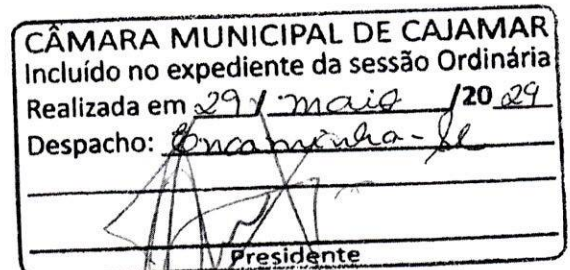 CÂMARA MUNICIPAL DE CAJAMAR
Incluído no expediente da sessão Ordinária
Realizada em 29 / maio /20 29
Despacho: Encaminha-se
Presidente